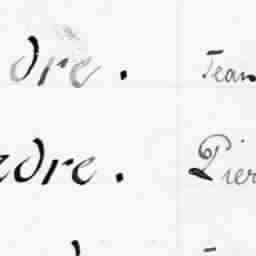 dre. Jean
edre. Pier